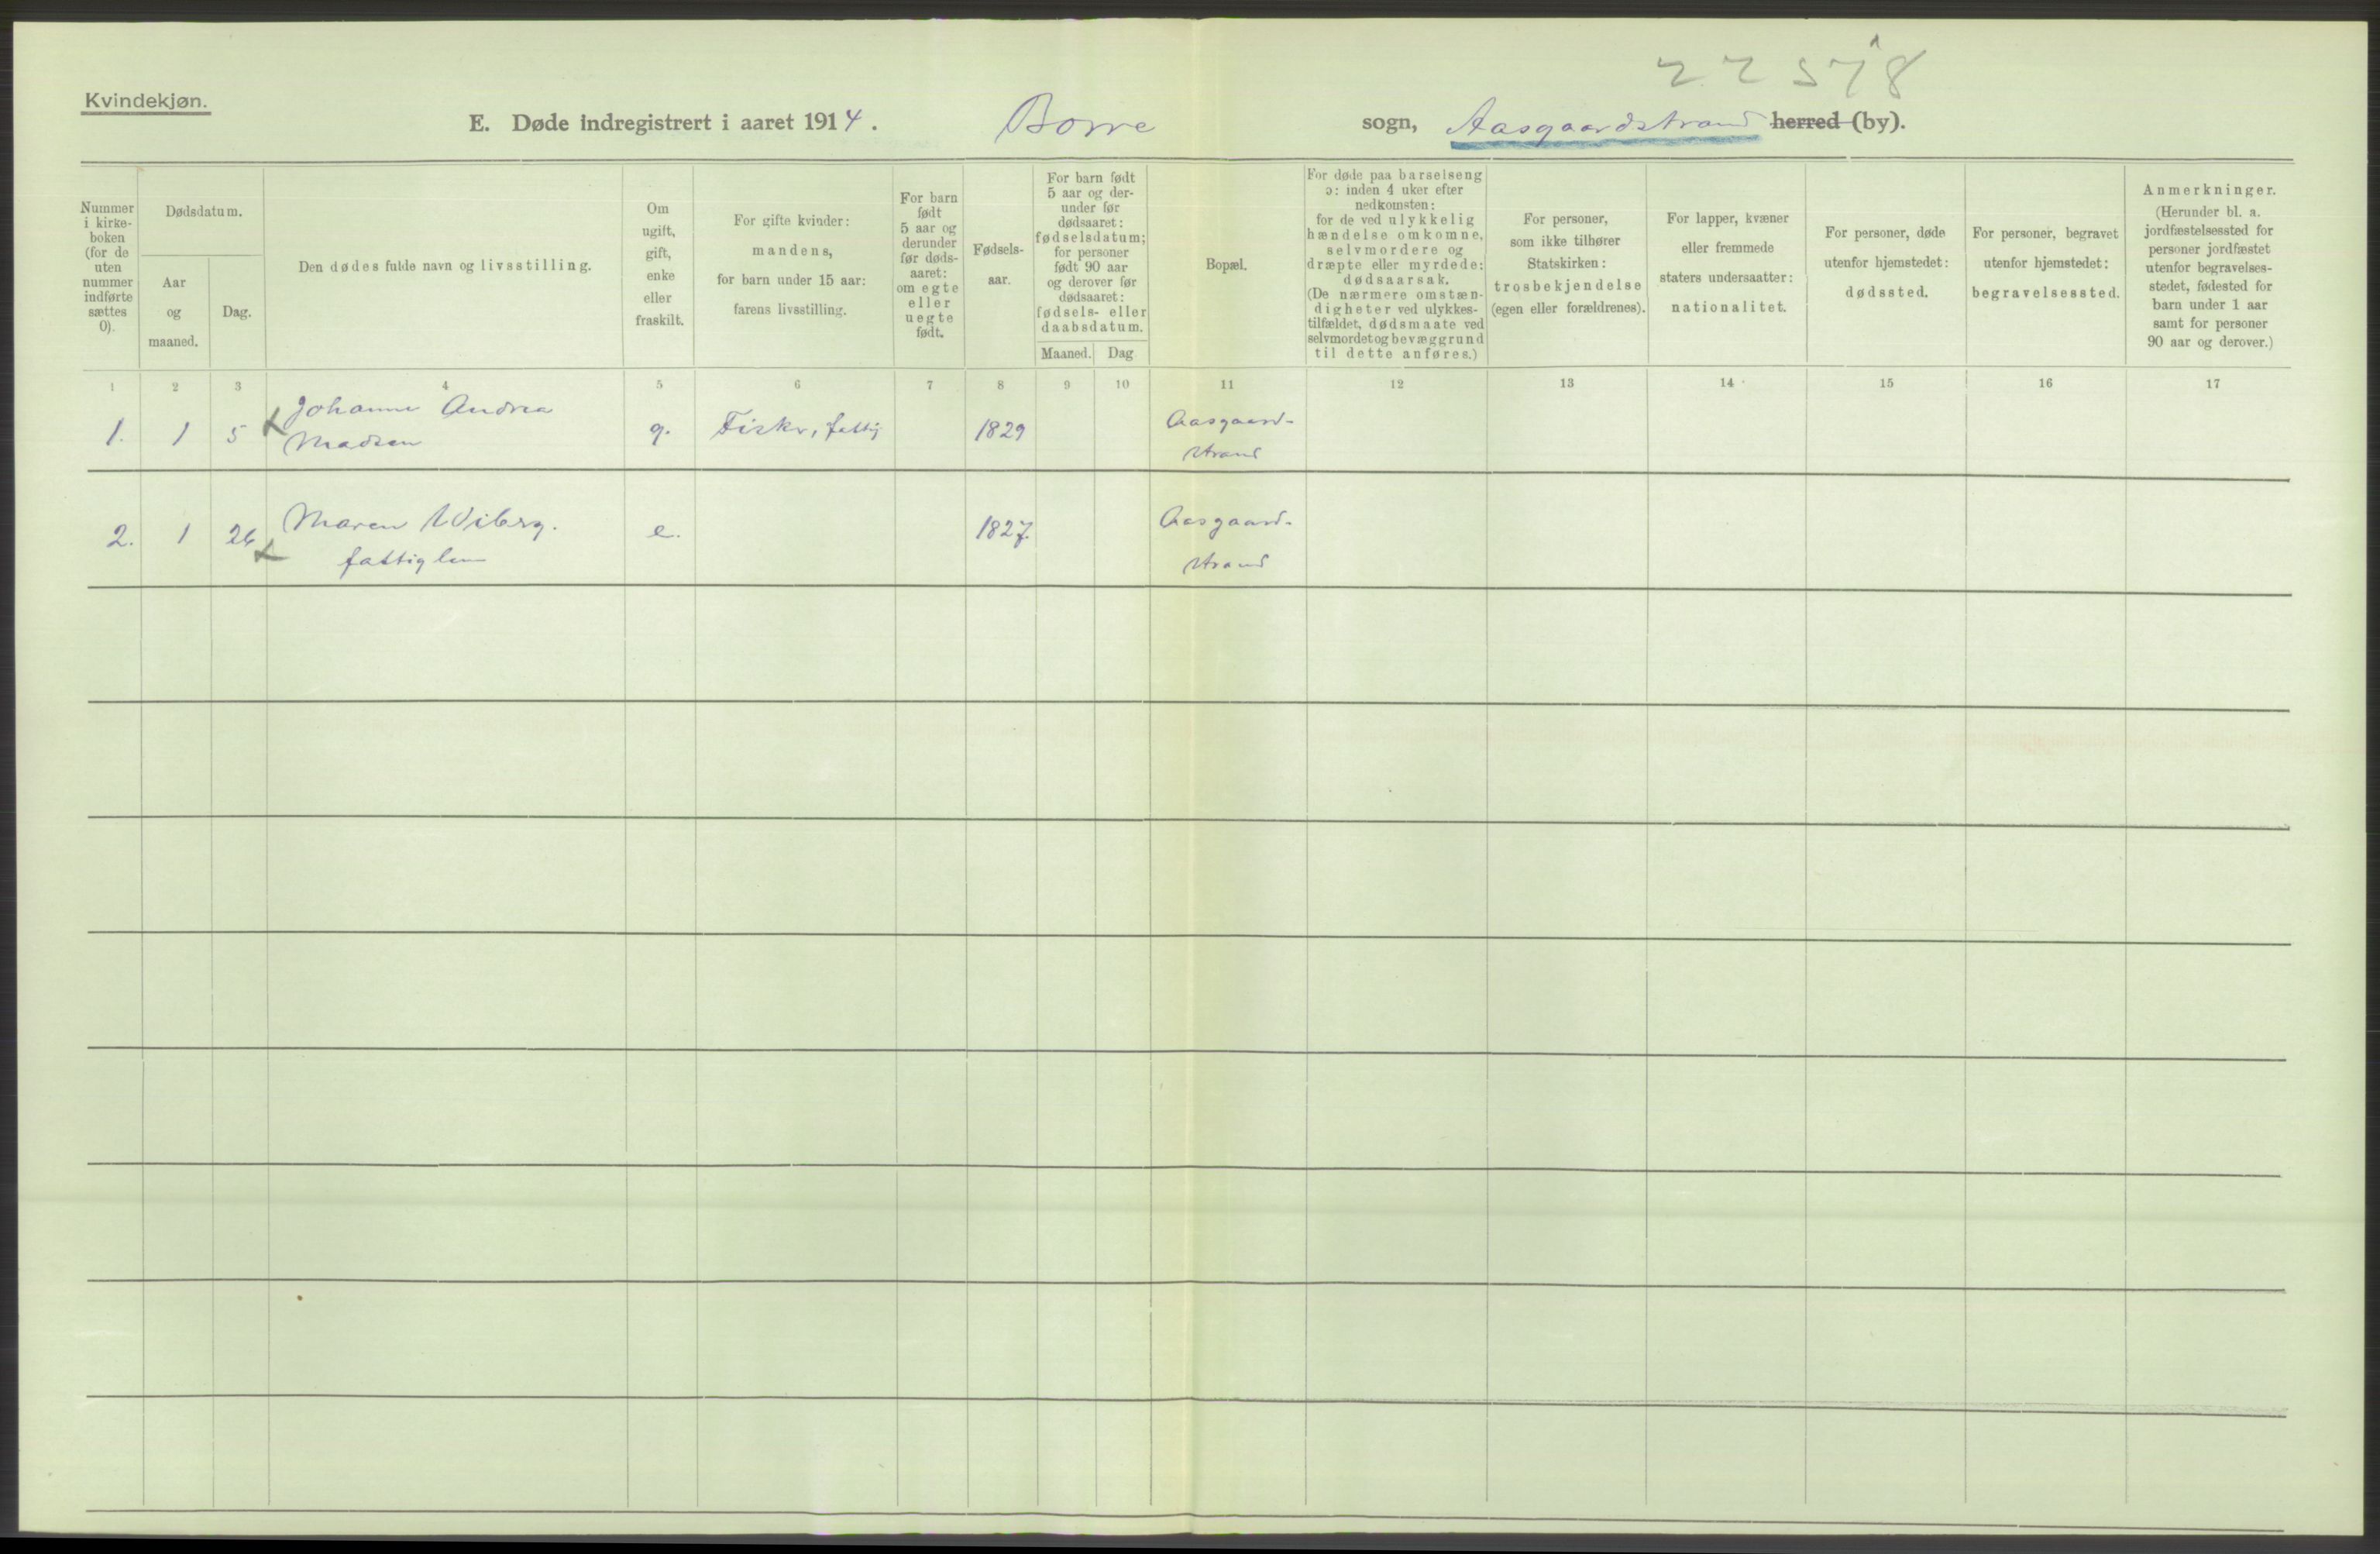 22578
Kvindekjøn.
E. Døde indregistrert i aaret 1914. Borre sogn, Aasgaardstrand herred (by).
Nummer
i kirke-
boken
(for de
uten
nummer
indførte
sættes
0).
Dødsdatum.
Aar
og
maaned.
Dag.
Den dødes fulde navn og livsstilling.
Om
ugift,
gift,
enke
eller
fraskilt.
For gifte kvinder:
mandens,
for barn under 15 aar:
farens livsstilling.
For barn
født
5 aar og
derunder
før døds-
aaret:
om egte
eller
uegte
født.
Fødsels-
aar.
For barn født
5 aar og der-
under før
dødsaaret:
fødselsdatum;
for personer
født 90 aar
og derover før
dødsaaret:
fødsels- eller
daabsdatum.
Maaned. Dag
Bopæl.
For døde paa barselseng
ɔ: inden 4 uker efter
nedkomsten:
for de ved ulykkelig
hændelse omkomne,
selvmordere og
dræpte eller myrdede:
dødsaarsak.
(De nærmere omstæn-
digheter ved ulykkes-
tilfældet, dødsmaate ved
selvmordet og bevæggrund
til dette anføres.)
For personer,
som ikke tilhører
Statskirken:
trosbekjendelse
(egen eller forældrenes).
For lapper, kvæner
eller fremmede
staters undersaatter:
nationalitet.
For personer, døde
utenfor hjemstedet:
dødssted.
For personer, begravet
utenfor hjemstedet:
begravelsessted.
Anmerkninger.
(Herunder bl. a.
jordfæstelsessted for
personer jordfæstet
utenfor begravelses-
stedet, fødested for
barn under 1 aar
samt for personer
90 aar og derover.)
1 2 3 4 5 6 7 8 9 10 11 12 13 14 15 16 17
Johanne Andrea
1. 1 5 Madsen g. Fisker, fattig 1829 Aasgaard-
strand
2. 1 26 Maren Wiberg. e. 1827. Aasgaard-
fattiglem strand